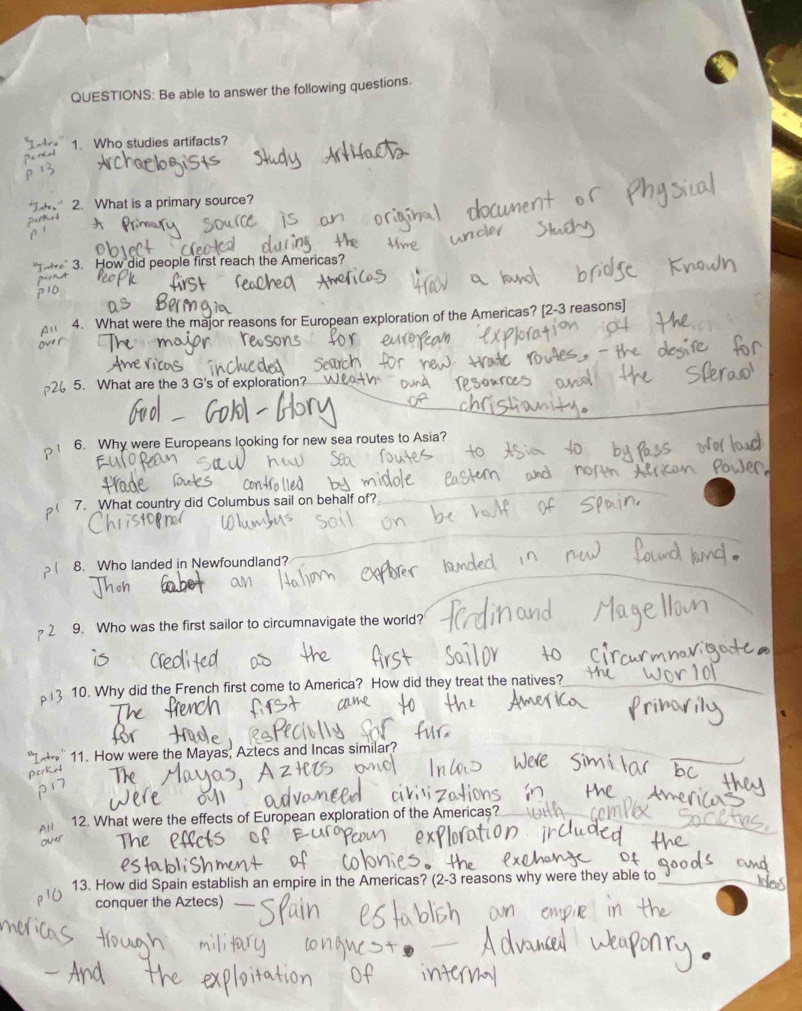 QUESTIONS: Be able to answer the following questions.
"Intro" 1. Who studies artifacts?
p 13 Archaelogists study Artifacts
"Intro" 2. What is a primary source?
p 1 A Primary source is an original document or physical
object created during the time under study
"Intro" 3. How did people first reach the Americas?
p10 People first reached Americas a land bridge known
as Beringia
All over 4. What were the major reasons for European exploration of the Americas? [2-3 reasons]
The major reasons for european exploration of the
Americas included search for new trade routes. - the desire for
p26 5. What are the 3 G's of exploration? wealth and resources and the
God - Gold - Glory of christianity.
p1 6. Why were Europeans looking for new sea routes to Asia?
European saw new sea routes to Asia to bypass overland
trade routes controlled by middle eastern and north African power.
p1 7. What country did Columbus sail on behalf of?
Christopher columbus sail on be half of Spain.
p1 8. Who landed in Newfoundland?
Jhon Cabot an Italian explorer landed in new found land.
p2 9. Who was the first sailor to circumnavigate the world? ferdinand Magellan
is credited as the first sailor to circurmnavigate
the world
p13 10. Why did the French first come to America? How did they treat the natives?
The french first came to the America Primarily
for trade, especially for fur.
"Intro" 11. How were the Mayas, Aztecs and Incas similar?
p17 The Mayas, Aztecs and Incas were similar bc they
were all advanced civilizations in the Americas
All over 12. What were the effects of European exploration of the Americas? with complex
The effects of European exploration included the
establishment of colonies. the exchange of goods and
p10 13. How did Spain establish an empire in the Americas? (2-3 reasons why were they able to
conquer the Aztecs) - Spain establish an empire in the
mericas trough military conquest. - Advanced weaponry.
- And the exploitation of internal